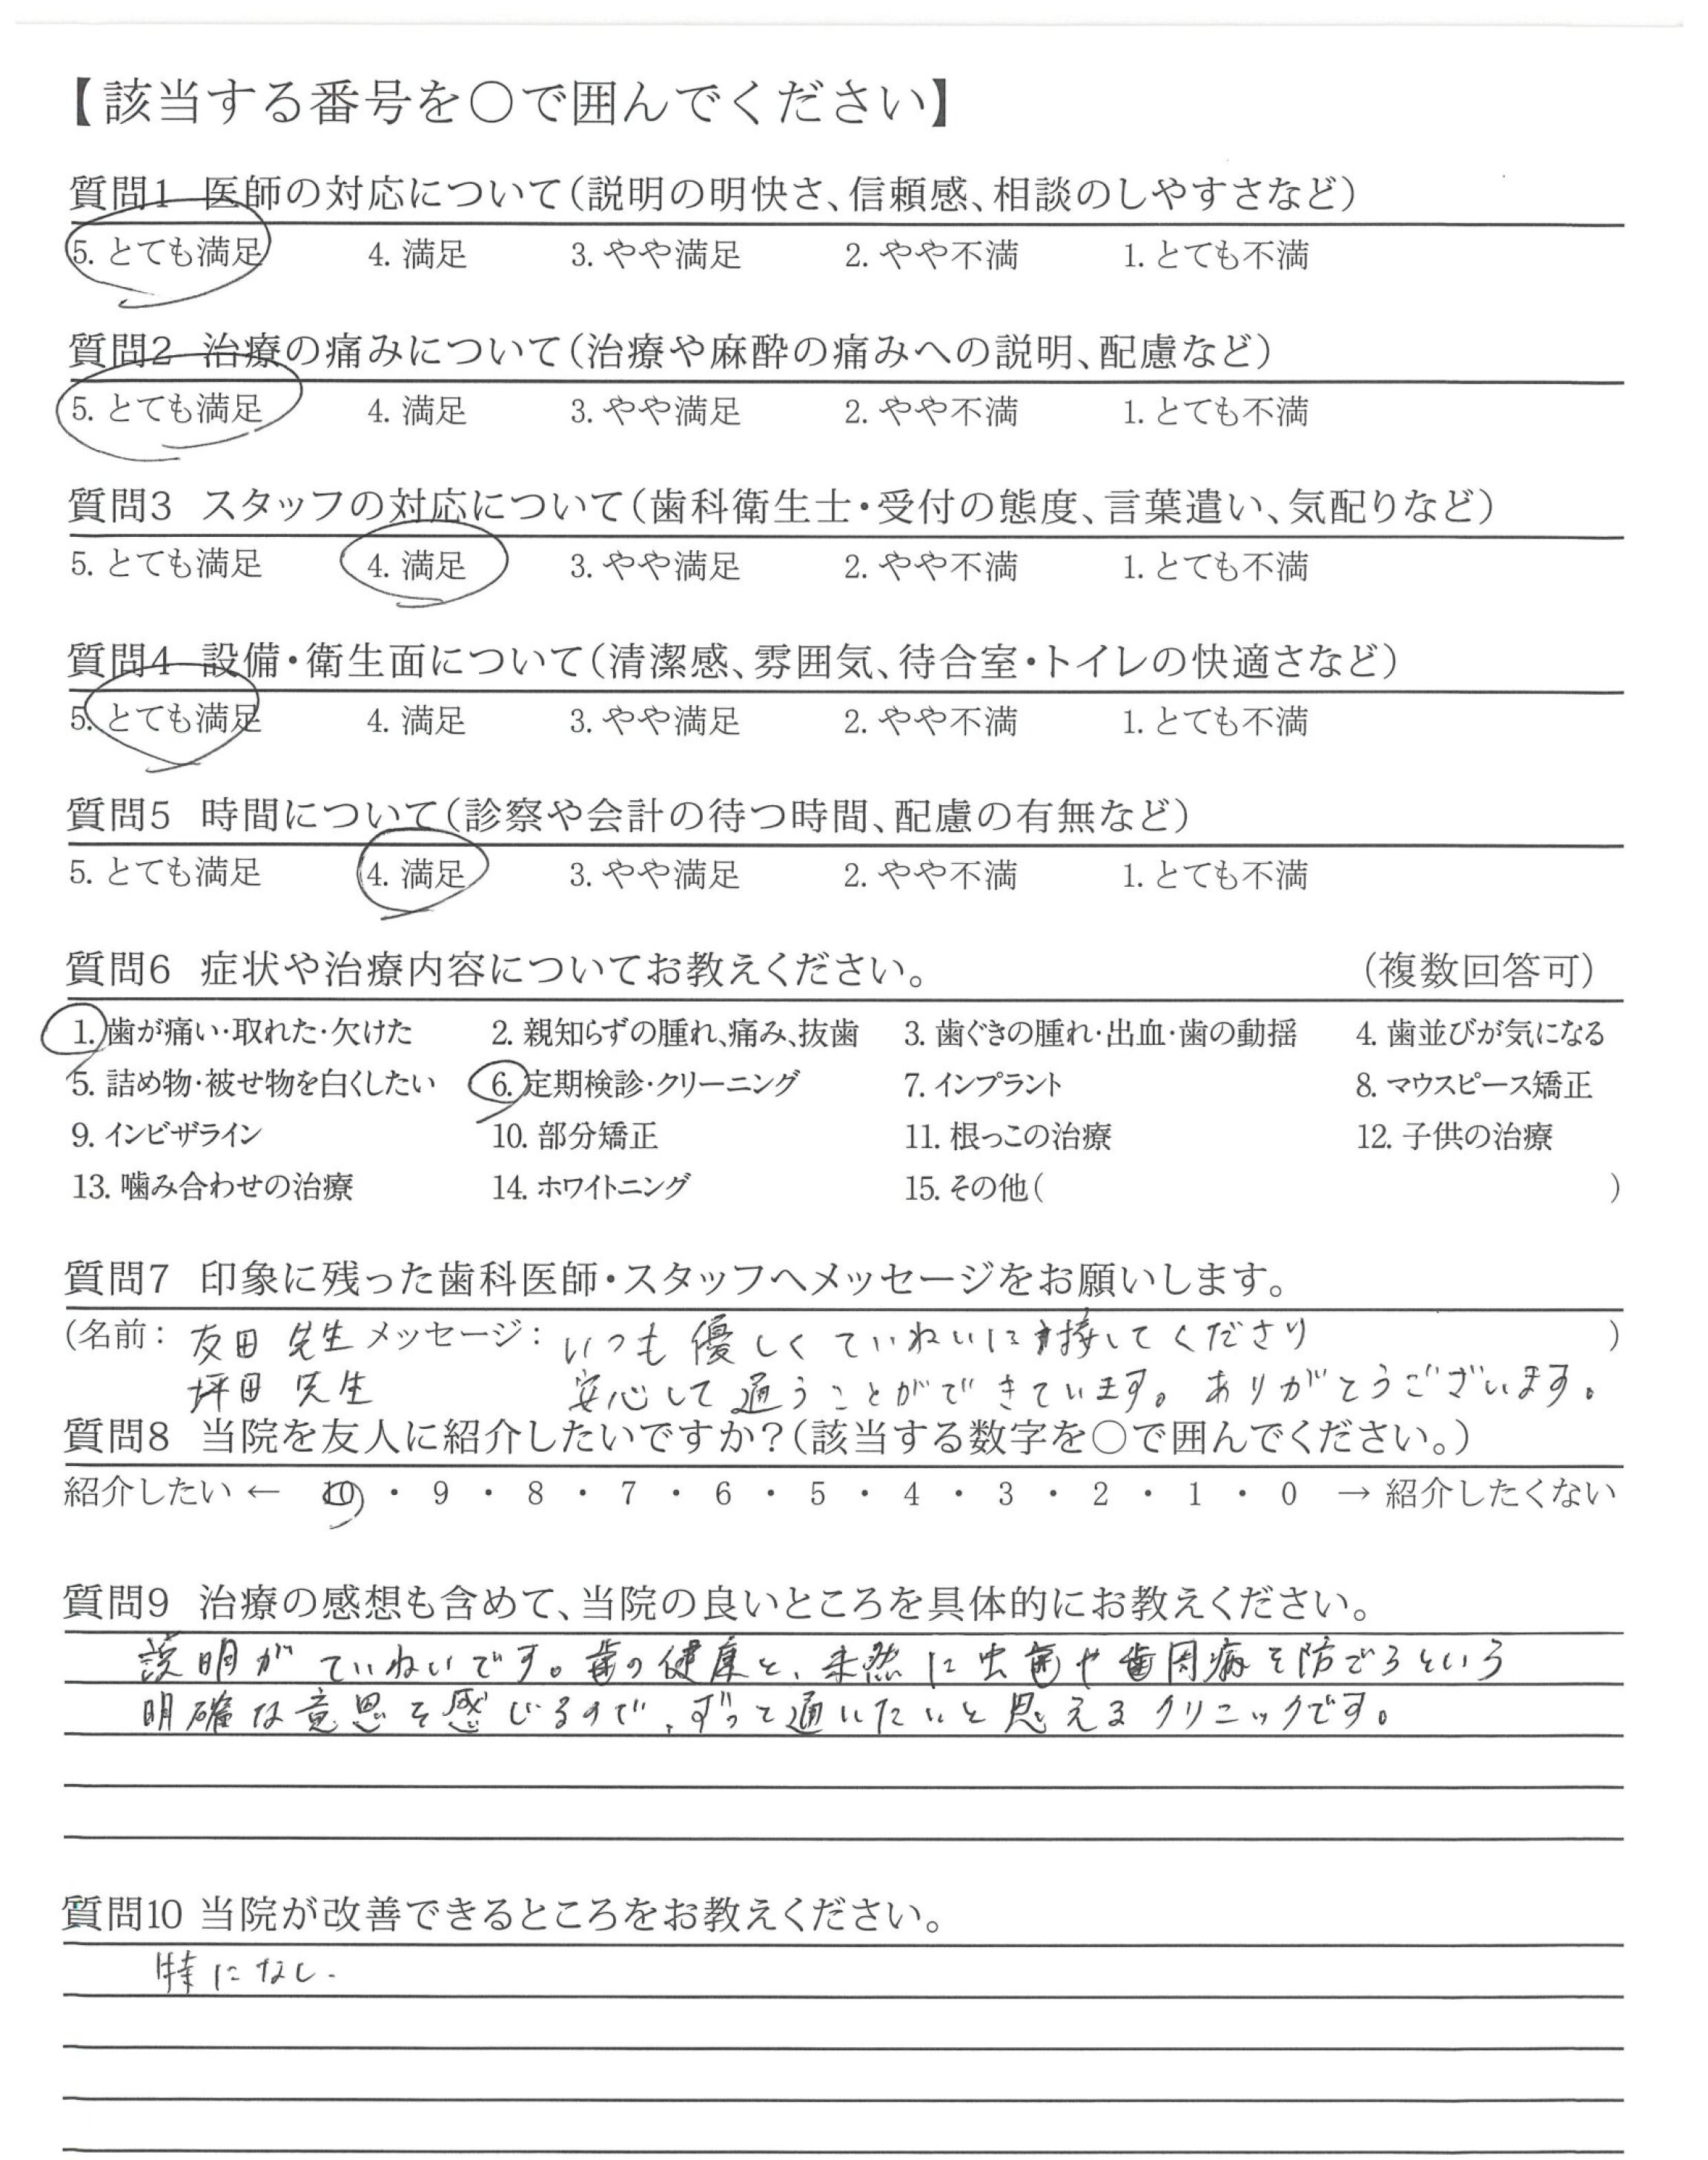 【該当する番号を○で囲んでください】
質問1 医師の対応について(説明の明快さ、信頼感、相談のしやすさなど)
5. とても満足 4. 満足 3. やや満足 2. やや不満 1. とても不満
質問2 治療の痛みについて(治療や麻酔の痛みへの説明、配慮など)
5. とても満足 4. 満足 3. やや満足 2. やや不満 1. とても不満
質問3 スタッフの対応について(歯科衛生士・受付の態度、言葉遣い、気配りなど)
5. とても満足 4. 満足 3. やや満足 2. やや不満 1. とても不満
質問4 設備・衛生面について(清潔感、雰囲気、待合室・トイレの快適さなど)
5. とても満足 4. 満足 3. やや満足 2. やや不満 1. とても不満
質問5 時間について(診察や会計の待つ時間、配慮の有無など)
5. とても満足 4. 満足 3. やや満足 2. やや不満 1. とても不満
質問6 症状や治療内容についてお教えください。 (複数回答可)
1. 歯が痛い・取れた・欠けた 2. 親知らずの腫れ、痛み、抜歯 3. 歯ぐきの腫れ・出血・歯の動揺 4. 歯並びが気になる
5. 詰め物・被せ物を白くしたい 6. 定期検診・クリーニング 7. インプラント 8. マウスピース矯正
9. インビザライン 10. 部分矯正 11. 根っこの治療 12. 子供の治療
13. 噛み合わせの治療 14. ホワイトニング 15. その他( )
質問7 印象に残った歯科医師・スタッフへメッセージをお願いします。
(名前: 友田 先生 メッセージ: いつも優しくていねいに接してくださり )
坪田 先生 安心して通うことができています。ありがとうございます。
質問8 当院を友人に紹介したいですか?(該当する数字を○で囲んでください。)
紹介したい ← 10 ・ 9 ・ 8 ・ 7 ・ 6 ・ 5 ・ 4 ・ 3 ・ 2 ・ 1 ・ 0 → 紹介したくない
質問9 治療の感想も含めて、当院の良いところを具体的にお教えください。
説明がていねいです。歯の健康と、未然に虫歯や歯周病を防ごうという
明確な意思を感じるので、ずっと通いたいと思えるクリニックです。
質問10 当院が改善できるところをお教えください。
特になし.